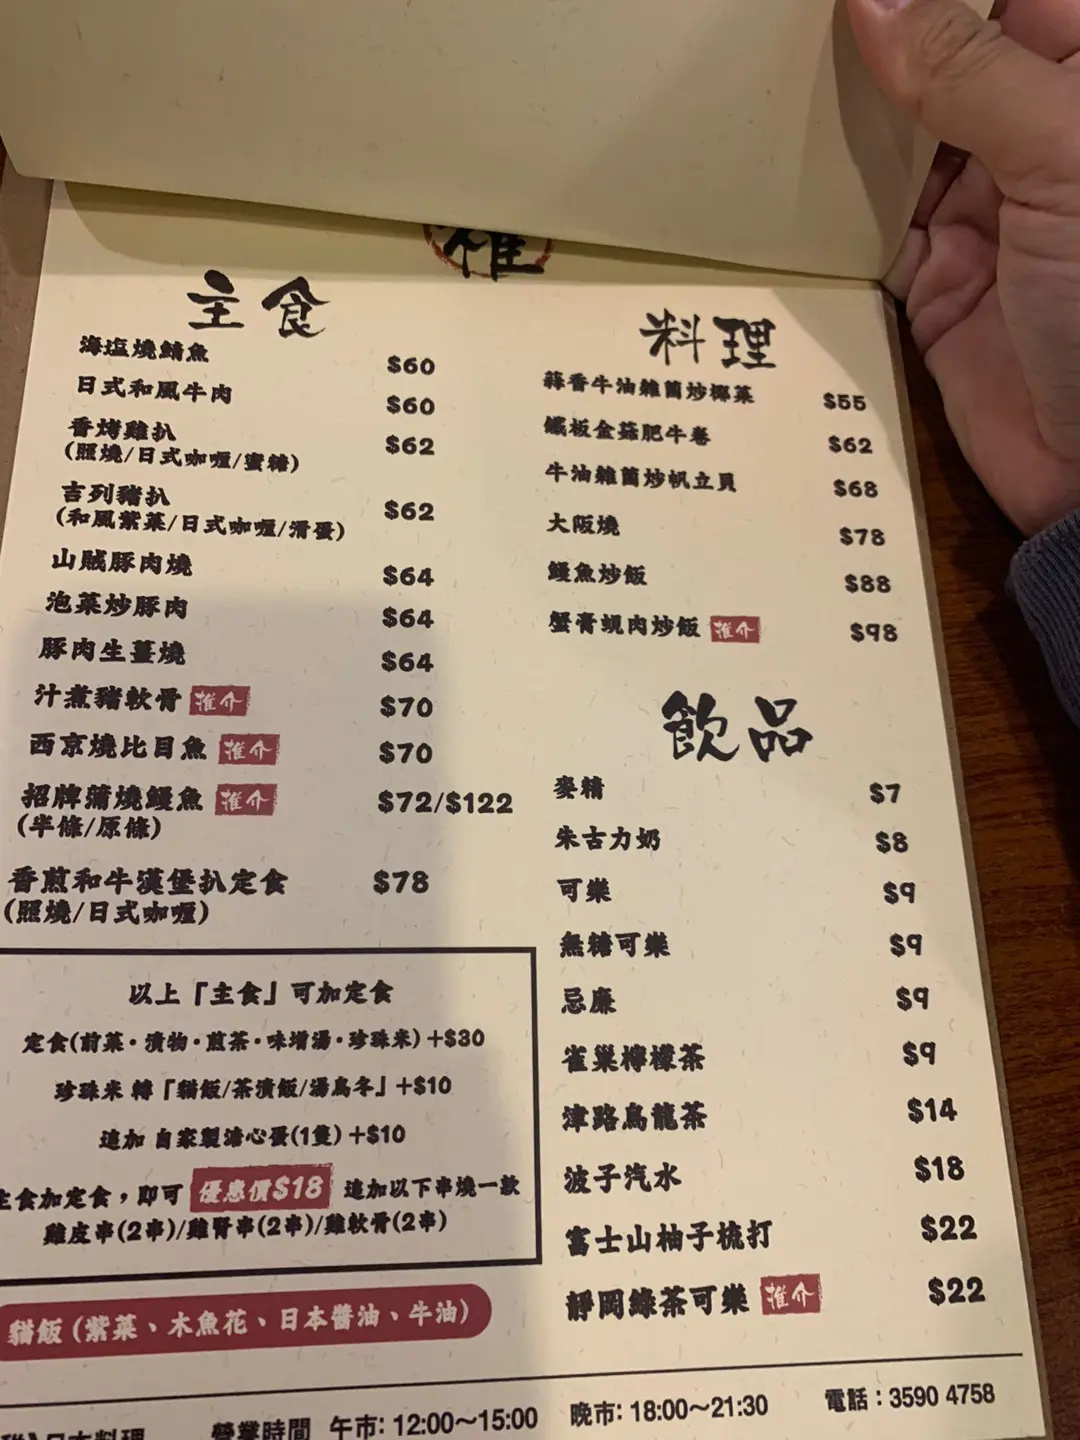 主食
海塩燒鯖魚 $60
日式和風牛肉 $60
香烤雞扒 $62
(照燒/日式咖喱/蜜糖)
吉列豬扒 $62
(和風紫菜/日式咖喱/滑蛋)
山賊豚肉燒 $64
泡菜炒豚肉 $64
豚肉生薑燒 $64
汁煮豬軟骨 推介 $70
西京燒比目魚 推介 $70
招牌蒲燒鰻魚 推介 $72/$122
(半條/原條)
香煎和牛漢堡扒定食 $78
(照燒/日式咖喱)
以上「主食」可加定食
定食(前菜・漬物・煎茶・味增湯・珍珠米) +$30
珍珠米 轉「貓飯/茶漬飯/湯烏冬」+$10
追加 自家製溏心蛋(1隻) +$10
主食加定食，即可 優惠價$18 追加以下串燒一款
雞皮串(2串)/雞腎串(2串)/雞軟骨(2串)
貓飯 (紫菜、木魚花、日本醬油、牛油)
料理
蒜香牛油雜菌炒椰菜 $55
鐵板金菇肥牛卷 $62
牛油雜菌炒帆立貝 $68
大阪燒 $78
鰻魚炒飯 $88
蟹膏蜆肉炒飯 推介 $98
飲品
麥精 $7
朱古力奶 $8
可樂 $9
無糖可樂 $9
忌廉 $9
雀巢檸檬茶 $9
津路烏龍茶 $14
波子汽水 $18
富士山柚子梳打 $22
靜岡綠茶可樂 推介 $22
日本料理 營業時間 午市: 12:00～15:00 晚市: 18:00～21:30 電話：3590 4758